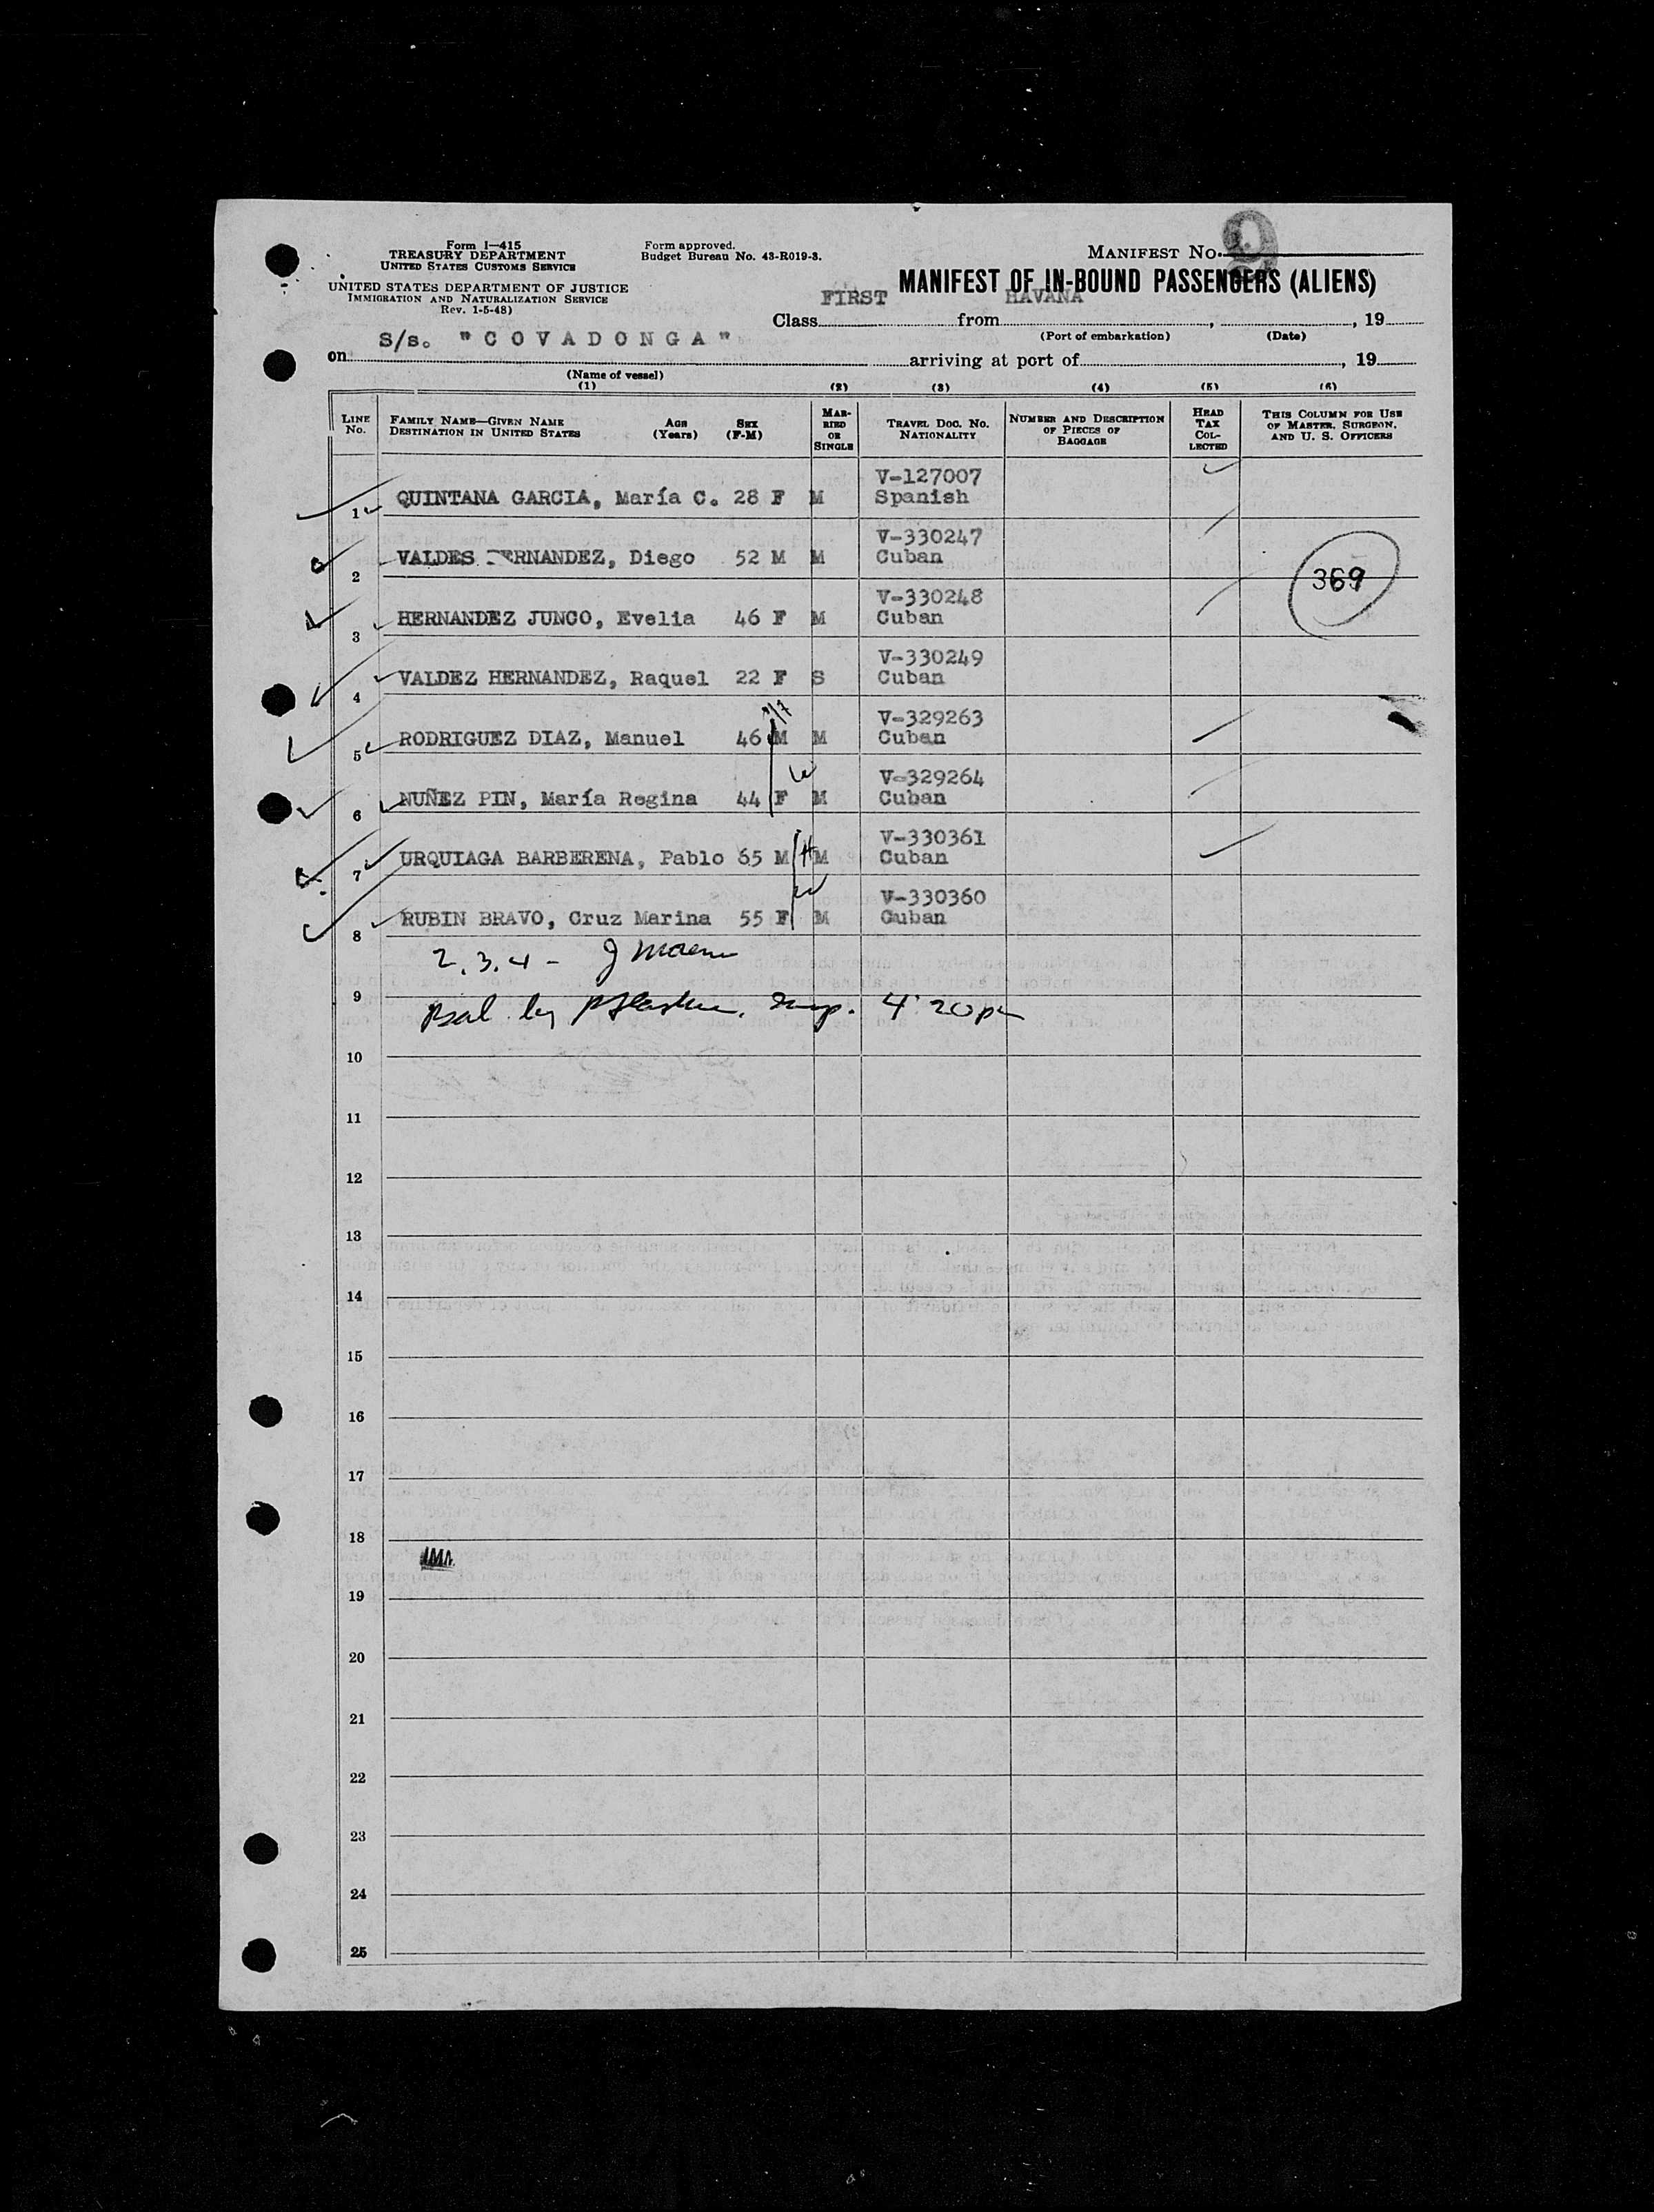 Form I—415
TREASURY DEPARTMENT
UNITED STATES CUSTOMS SERVICE
UNITED STATES DEPARTMENT OF JUSTICE
IMMIGRATION AND NATURALIZATION SERVICE
Rev. 1-5-48)
Form approved.
Budget Bureau No. 43-R019-3.
MANIFEST No. 9
MANIFEST OF IN-BOUND PASSENGERS (ALIENS)
Class FIRST from HAVANA, , 19
(Port of embarkation) (Date)
on S/s. "COVADONGA" arriving at port of , 19
(Name of vessel)
(1) (2) (3) (4) (5) (6)
LINE No. FAMILY NAME—GIVEN NAME DESTINATION IN UNITED STATES AGE (Years) SEX (F-M) MARRIED OR SINGLE TRAVEL DOC. No. NATIONALITY NUMBER AND DESCRIPTION OF PIECES OF BAGGAGE HEAD TAX COLLECTED THIS COLUMN FOR USE OF MASTER, SURGEON, AND U. S. OFFICERS
V-127007
1 QUINTANA GARCIA, María C. 28 F M Spanish
V-330247
2 VALDES FERNANDEZ, Diego 52 M M Cuban
369
V-330248
3 HERNANDEZ JUNCO, Evelia 46 F M Cuban
V-330249
4 VALDEZ HERNANDEZ, Raquel 22 F S Cuban
V-329263
5 RODRIGUEZ DIAZ, Manuel 46 M M Cuban
W V-329264
6 NUÑEZ PIN, María Regina 44 F M Cuban
V-330361
7 URQUIAGA BARBERENA, Pablo 65 M H M Cuban
W V-330360
8 RUBIN BRAVO, Cruz Marina 55 F M Cuban
2, 3, 4 - J
9
by Insp. 4:20 pm
10
11
12
13
14
15
16
17
18
19
20
21
22
23
24
25